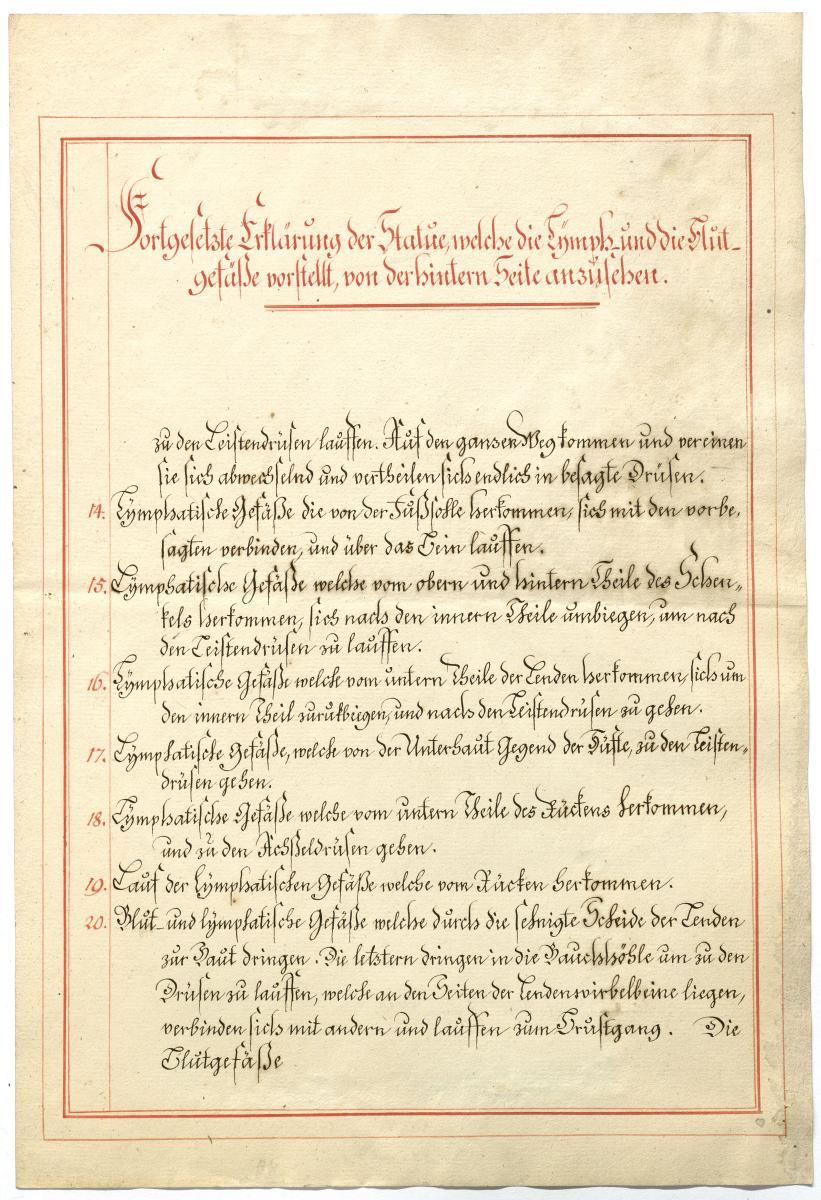 Fortgesetzte Erklärung der Statue, welche die Lÿmph- und die Blut-
gefäße vorstellt, von der hintern Seite anzusehen.
zu den Leistendrüsen lauffen. Auf den ganzen Weg kommen und vereinen
sie sich abwechselnd und vertheilen sich endlich in besagte Drüsen.
14. Lÿmphatische Gefäße die von der Fußsohle herkommen, sich mit den vorbe„
sagten verbinden, und über das Bein lauffen.
15. Lÿmphatische Gefäße welche vom obern und hintern Theile des Schen„
kels herkommen, sich nach den innern Theile umbiegen, um nach
den Leistendrüsen zu lauffen.
16. Lÿmphatische Gefäße welche vom untern Theile der Lenden herkommen, sich um
den innern Theil zurukbiegen, und nach den Leistendrüsen zu gehen.
17. Lÿmphatische Gefäße, welche von der Unterhaut Gegend der Hüfte, zu den Leisten„
drüsen gehen.
18. Lÿmphatische Gefäße welche vom untern Theile des Rückens herkommen,
und zu den Achßeldrüsen gehen.
19. Lauf der Lymphatischen Gefäße welche vom Rücken herkommen.
20. Blut- und lymphatische Gefäße welche durch die sehnigte Scheide der Lenden
zur Haut dringen. Die letztern dringen in die Bauchhöhle um zu den
Drüsen zu lauffen, welche an den Seiten der Lendenwirbelbeine liegen,
verbinden sich mit andern und lauffen zum Brustgang. Die
Blutgefäße